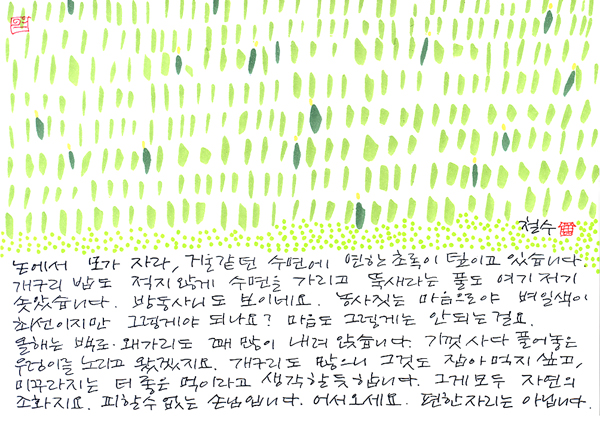 철수
논에서 모가 자라, 거울같던 수면에 연한 초록이 덮이고 있습니다.
개구리 밥도 적지않게 수면을 가리고 뚝새라는 풀도 여기 저기
솟았습니다. 방동사니도 보이네요. 농사짓는 마음으로야 벼일색이
최선이지만 그렇게야 되나요? 마음도 그렇게는 안되는걸요.
올해는 백로·왜가리도 꽤 많이 내려 앉습니다. 기껏 사다 풀어놓은
우렁이를 노리고 왔겠지요. 개구리도 많으니 그것도 잡아 먹지 싶고,
미꾸라지는 더 좋은 먹이라고 생각할듯 합니다. 그게 모두 자연의
조화지요. 피할수 없는 손님입니다. 어서오세요. 편한자리는 아닙니다.